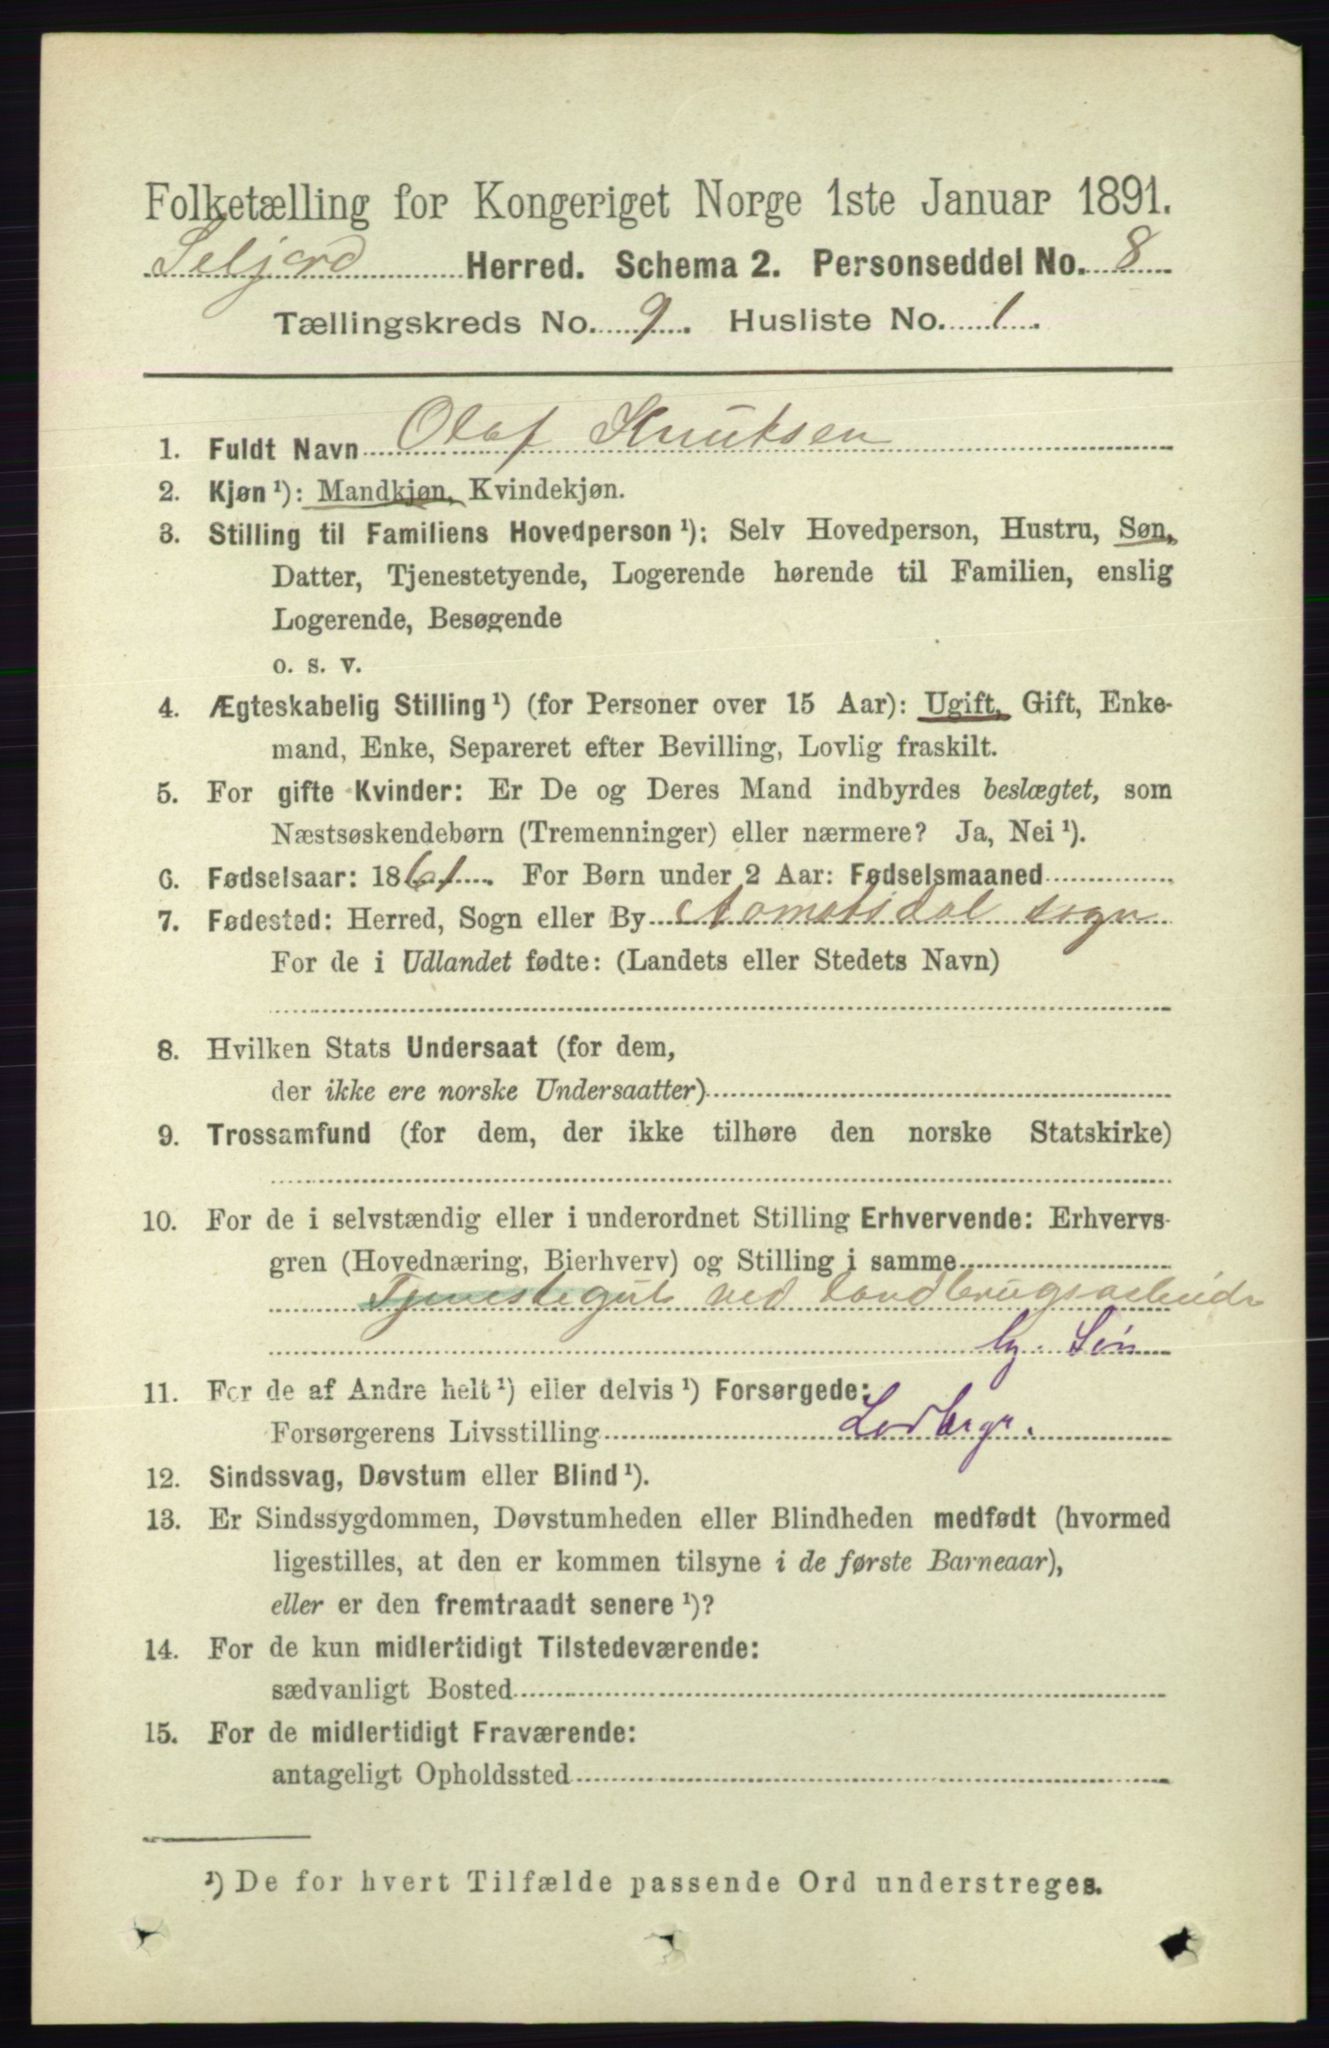 Folketælling for Kongeriget Norge 1ste Januar 1891.
Seljord Herred. Schema 2. Personseddel No. 8
Tællingskreds No. 9. Husliste No. 1.
1. Fuldt Navn Olaf Knutsen
2. Kjøn ¹): Mandkjøn, Kvindekjøn.
3. Stilling til Familiens Hovedperson ¹): Selv Hovedperson, Hustru, Søn,
Datter, Tjenestetyende, Logerende hørende til Familien, enslig
Logerende, Besøgende
o. s. v.
4. Ægteskabelig Stilling ¹) (for Personer over 15 Aar): Ugift, Gift, Enke-
mand, Enke, Separeret efter Bevilling, Lovlig fraskilt.
5. For gifte Kvinder: Er De og Deres Mand indbyrdes beslægtet, som
Næstsøskendebørn (Tremenninger) eller nærmere? Ja, Nei ¹).
6. Fødselsaar: 1861. For Børn under 2 Aar: Fødselsmaaned
7. Fødested: Herred, Sogn eller By Aamotsdal sogn
For de i Udlandet fødte: (Landets eller Stedets Navn)
8. Hvilken Stats Undersaat (for dem,
der ikke ere norske Undersaatter)
9. Trossamfund (for dem, der ikke tilhøre den norske Statskirke)
10. For de i selvstændig eller i underordnet Stilling Erhvervende: Erhvervs-
gren (Hovednæring, Bierhverv) og Stilling i samme
Tjenestegut ved landbrugsarbeide
Søn
11. For de af Andre helt ¹) eller delvis ¹) Forsørgede:
Forsørgerens Livsstilling
12. Sindssvag, Døvstum eller Blind ¹).
13. Er Sindssygdommen, Døvstumheden eller Blindheden medfødt (hvormed
ligestilles, at den er kommen tilsyne i de første Barneaar),
eller er den fremtraadt senere ¹)?
14. For de kun midlertidigt Tilstedeværende:
sædvanligt Bosted
15. For de midlertidigt Fraværende:
antageligt Opholdssted
¹) De for hvert Tilfælde passende Ord understreges.